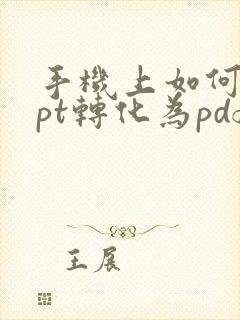 手機上如何
pt轉化為pd
王展